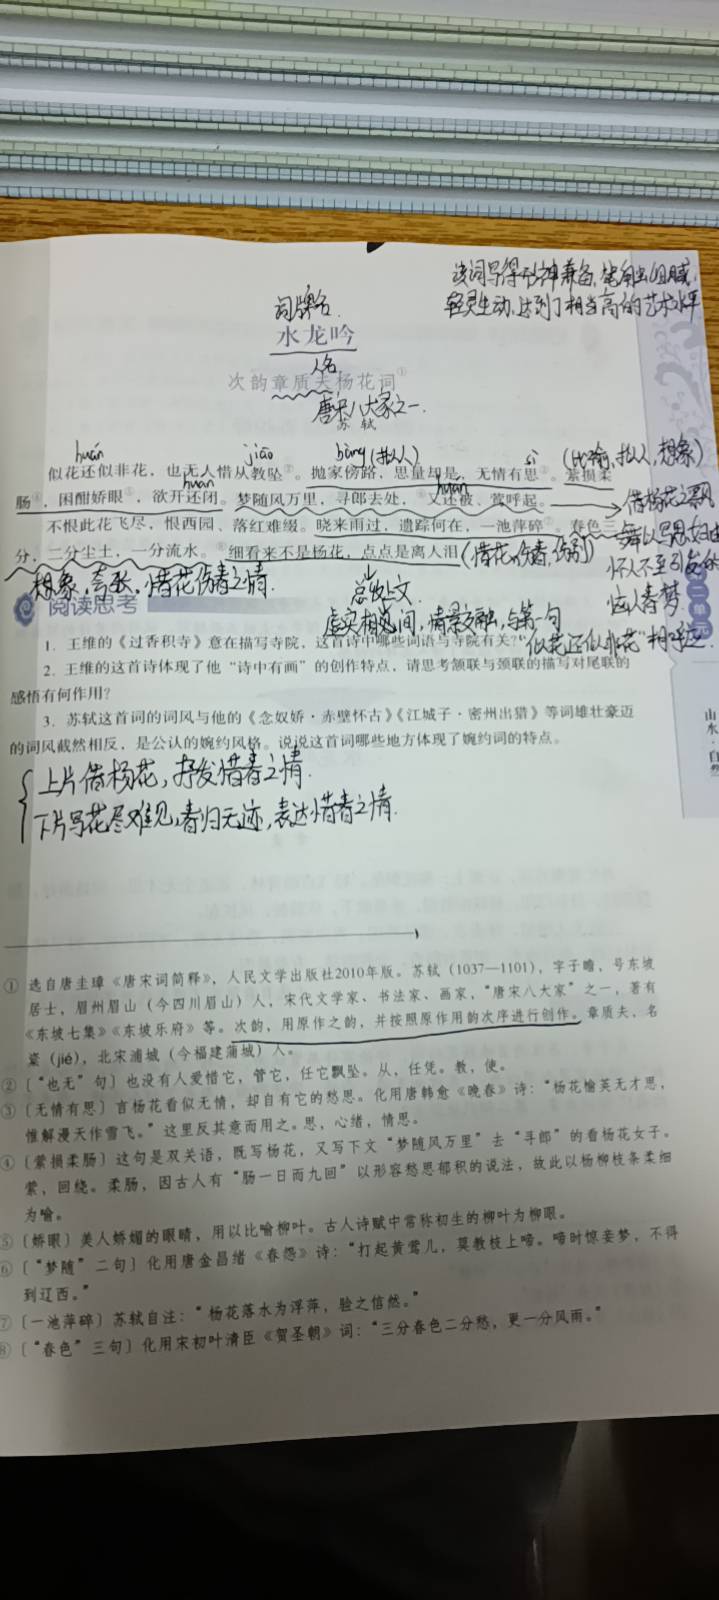 该词写得形神兼备,笔触细腻,
轻灵生动,达到了相当高的艺术水平
词牌名.
水龙吟
人名
次韵章质夫杨花词①
唐宋八大家之一.
苏轼
huán
jiāo
bàng(拟人)
sì
(比喻,拟人,想象)
似花还似非花,也无人惜从教坠②。抛家傍路,思量却是,无情有思③。萦损柔
huán
huán
肠④,困酣娇眼⑤,欲开还闭。梦随风万里,寻郎去处,⑥又还被、莺呼起。
借杨花之飘
不恨此花飞尽,恨西园、落红难缀。晓来雨过,遗踪何在,一池萍碎⑦。春色三
舞以写思妇由
分,二分尘土,一分流水。⑧细看来不是杨花,点点是离人泪
(惜花,伤春,伤别)
怀人不至引发的
想象,夸张,惜花伤春之情.
总收上文.
恼人春梦.
阅读思考
虚实相间,情景交融,与第一句
1. 王维的《过香积寺》意在描写寺院,这首诗中哪些词语与寺院有关?
“似花还似非花”相呼应.
2. 王维的这首诗体现了他“诗中有画”的创作特点,请思考颔联与颈联的描写对尾联的
感悟有何作用?
3. 苏轼这首词的词风与他的《念奴娇·赤壁怀古》《江城子·密州出猎》等词雄壮豪迈
的词风截然相反,是公认的婉约风格。说说这首词哪些地方体现了婉约词的特点。
第二单元
山水·自然
上片借杨花,抒发惜春之情.
下片写花尽难见,春归无迹,表达惜春之情.
① 选自唐圭璋《唐宋词简释》,人民文学出版社2010年版。苏轼(1037—1101),字子瞻,号东坡
居士,眉州眉山(今四川眉山)人,宋代文学家、书法家、画家,“唐宋八大家”之一,著有
《东坡七集》《东坡乐府》等。次韵,用原作之韵,并按照原作用韵次序进行创作。章质夫,名
楶(jié),北宋浦城(今福建蒲城)人。
② 〔“也无”句〕也没有人爱惜它,管它,任它飘坠。从,任凭。教,使。
③ 〔无情有思〕言杨花看似无情,却自有它的愁思。化用唐韩愈《晚春》诗:“杨花榆荚无才思,
惟解漫天作雪飞。”这里反其意而用之。思,心绪,情思。
④ 〔萦损柔肠〕这句是双关语,既写杨花,又写下文“梦随风万里”去“寻郎”的看杨花女子。
萦,回绕。柔肠,因古人有“肠一日而九回”以形容愁思郁积的说法,故此以杨柳枝条柔细
为喻。
⑤ 〔娇眼〕美人娇媚的眼睛,用以比喻柳叶。古人诗赋中常称初生的柳叶为柳眼。
⑥ 〔“梦随”二句〕化用唐金昌绪《春怨》诗:“打起黄莺儿,莫教枝上啼。啼时惊妾梦,不得
到辽西。”
⑦ 〔一池萍碎〕苏轼自注:“杨花落水为浮萍,验之信然。”
⑧ 〔“春色”三句〕化用宋初叶清臣《贺圣朝》词:“三分春色二分愁,更一分风雨。”